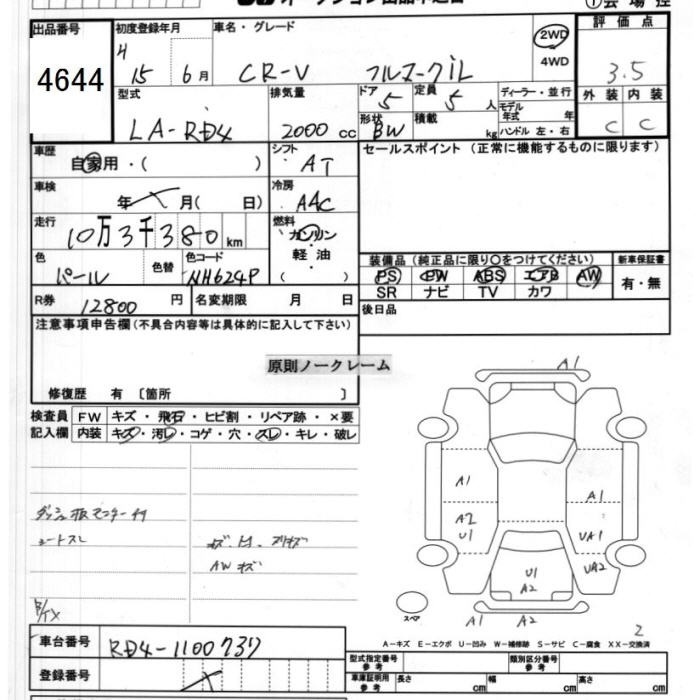 出品番号 初度登録年月 車名・グレード 2WD 4WD 評価点
4644
H 15 6月 CR-V フルマークiL 3.5
型式 排気量 ドア 定員 ディーラー・並行 外装 内装
LA-RD4 2000 cc 5 5 人 モデル年式 年 C C
形状 BW 積載 kg ハンドル 左・右
車歴 自家用・( ) シフト AT セールスポイント (正常に機能するものに限ります)
車検 年 月( 日) 冷房 AAC
走行 10万3千380 km 燃料 ガソリン・軽油・( )
色 パール 色替 色コード NH624P
装備品 (純正品に限り〇をつけてください) 新車保証書
PS PW ABS エアB AW 有・無
SR ナビ TV カワ
R券 12800 円 名変期限 月 日 後日品
注意事項申告欄 (不具合内容等は具体的に記入して下さい)
原則ノークレーム
修復歴 有 〔箇所 〕
検査員 FW キズ・飛石・ヒビ割・リペア跡・×要
記入欄 内装 キズ・汚レ・コゲ・穴・スレ・キレ・破レ
A1
A1 A1
A2 U1 UA1
U1 A2 UA2
スペア A1 A2
2
シートスレ
AW キズ
A-キズ E-エクボ U-凹み W-補修跡 S-サビ C-腐食 XX-交換済
車台番号 RD4-1100737
登録番号
型式指定番号 参考 類別区分番号 参考
車庫証明用 参考 長さ cm 幅 cm 高さ cm